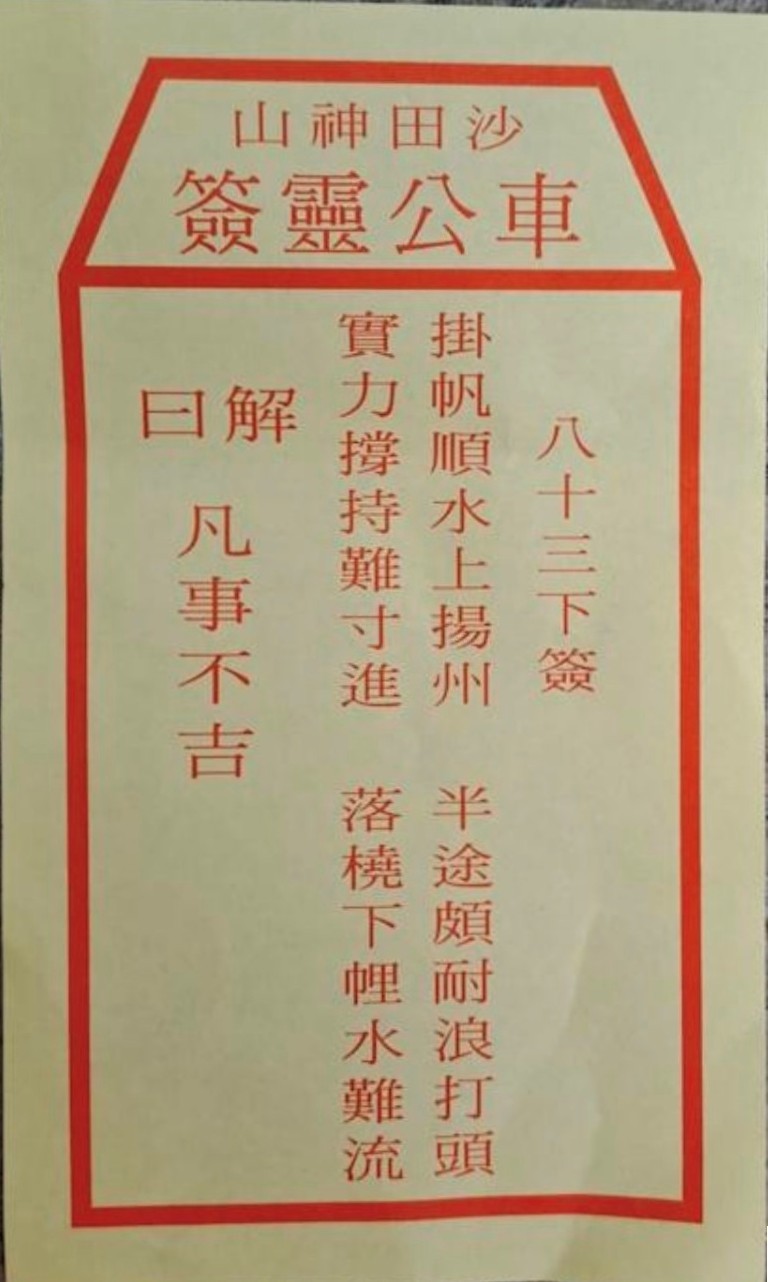 沙田神山
車公靈簽
八十三下簽
掛帆順水上揚州　半途頗耐浪打頭
實力撐持難寸進　落橈下悝水難流
解曰
凡事不吉